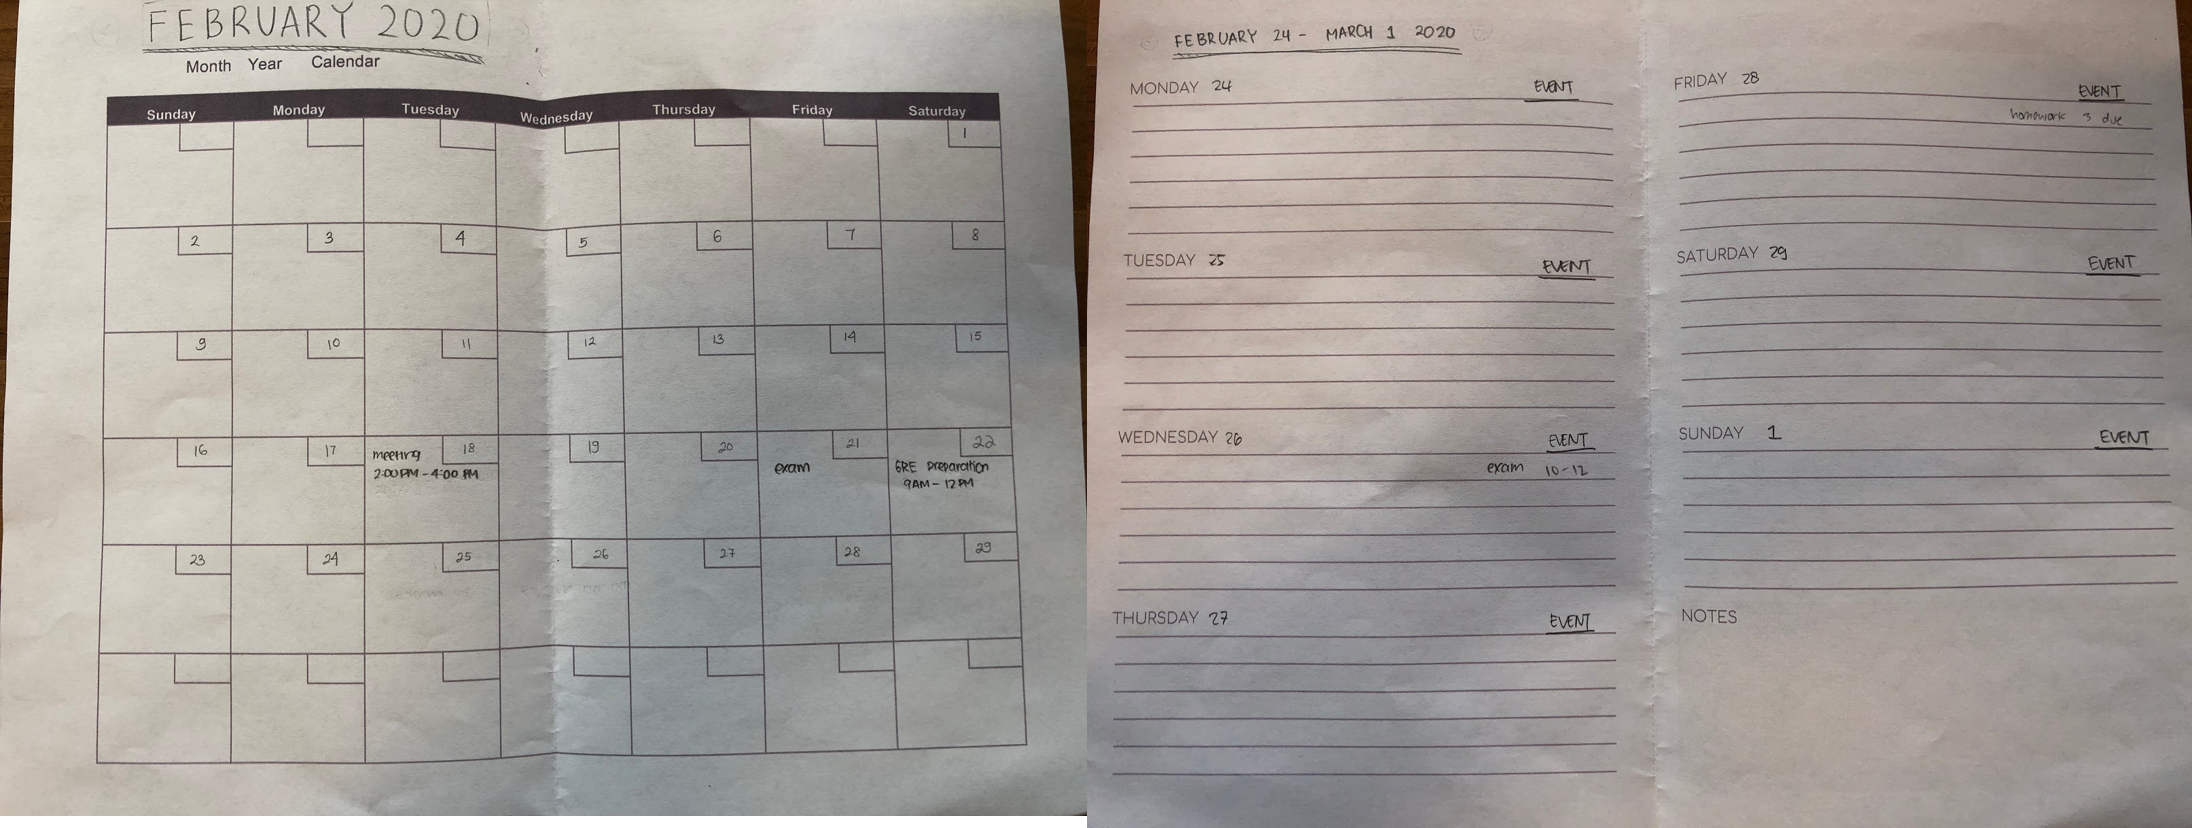 FEBRUARY 2020
Month Year Calendar
Sunday Monday Tuesday Wednesday Thursday Friday Saturday
1
2 3 4 5 6 7 8
9 10 11 12 13 14 15
16 17 18 19 20 21 22
meeting
2:00 PM - 4:00 PM
exam
GRE preparation
9AM - 12 PM
23 24 25 26 27 28 29
FEBRUARY 24 - MARCH 1 2020
MONDAY 24 EVENT
TUESDAY 25 EVENT
WEDNESDAY 26 EVENT
exam 10-12
THURSDAY 27 EVENT
FRIDAY 28 EVENT
homework 3 due
SATURDAY 29 EVENT
SUNDAY 1 EVENT
NOTES